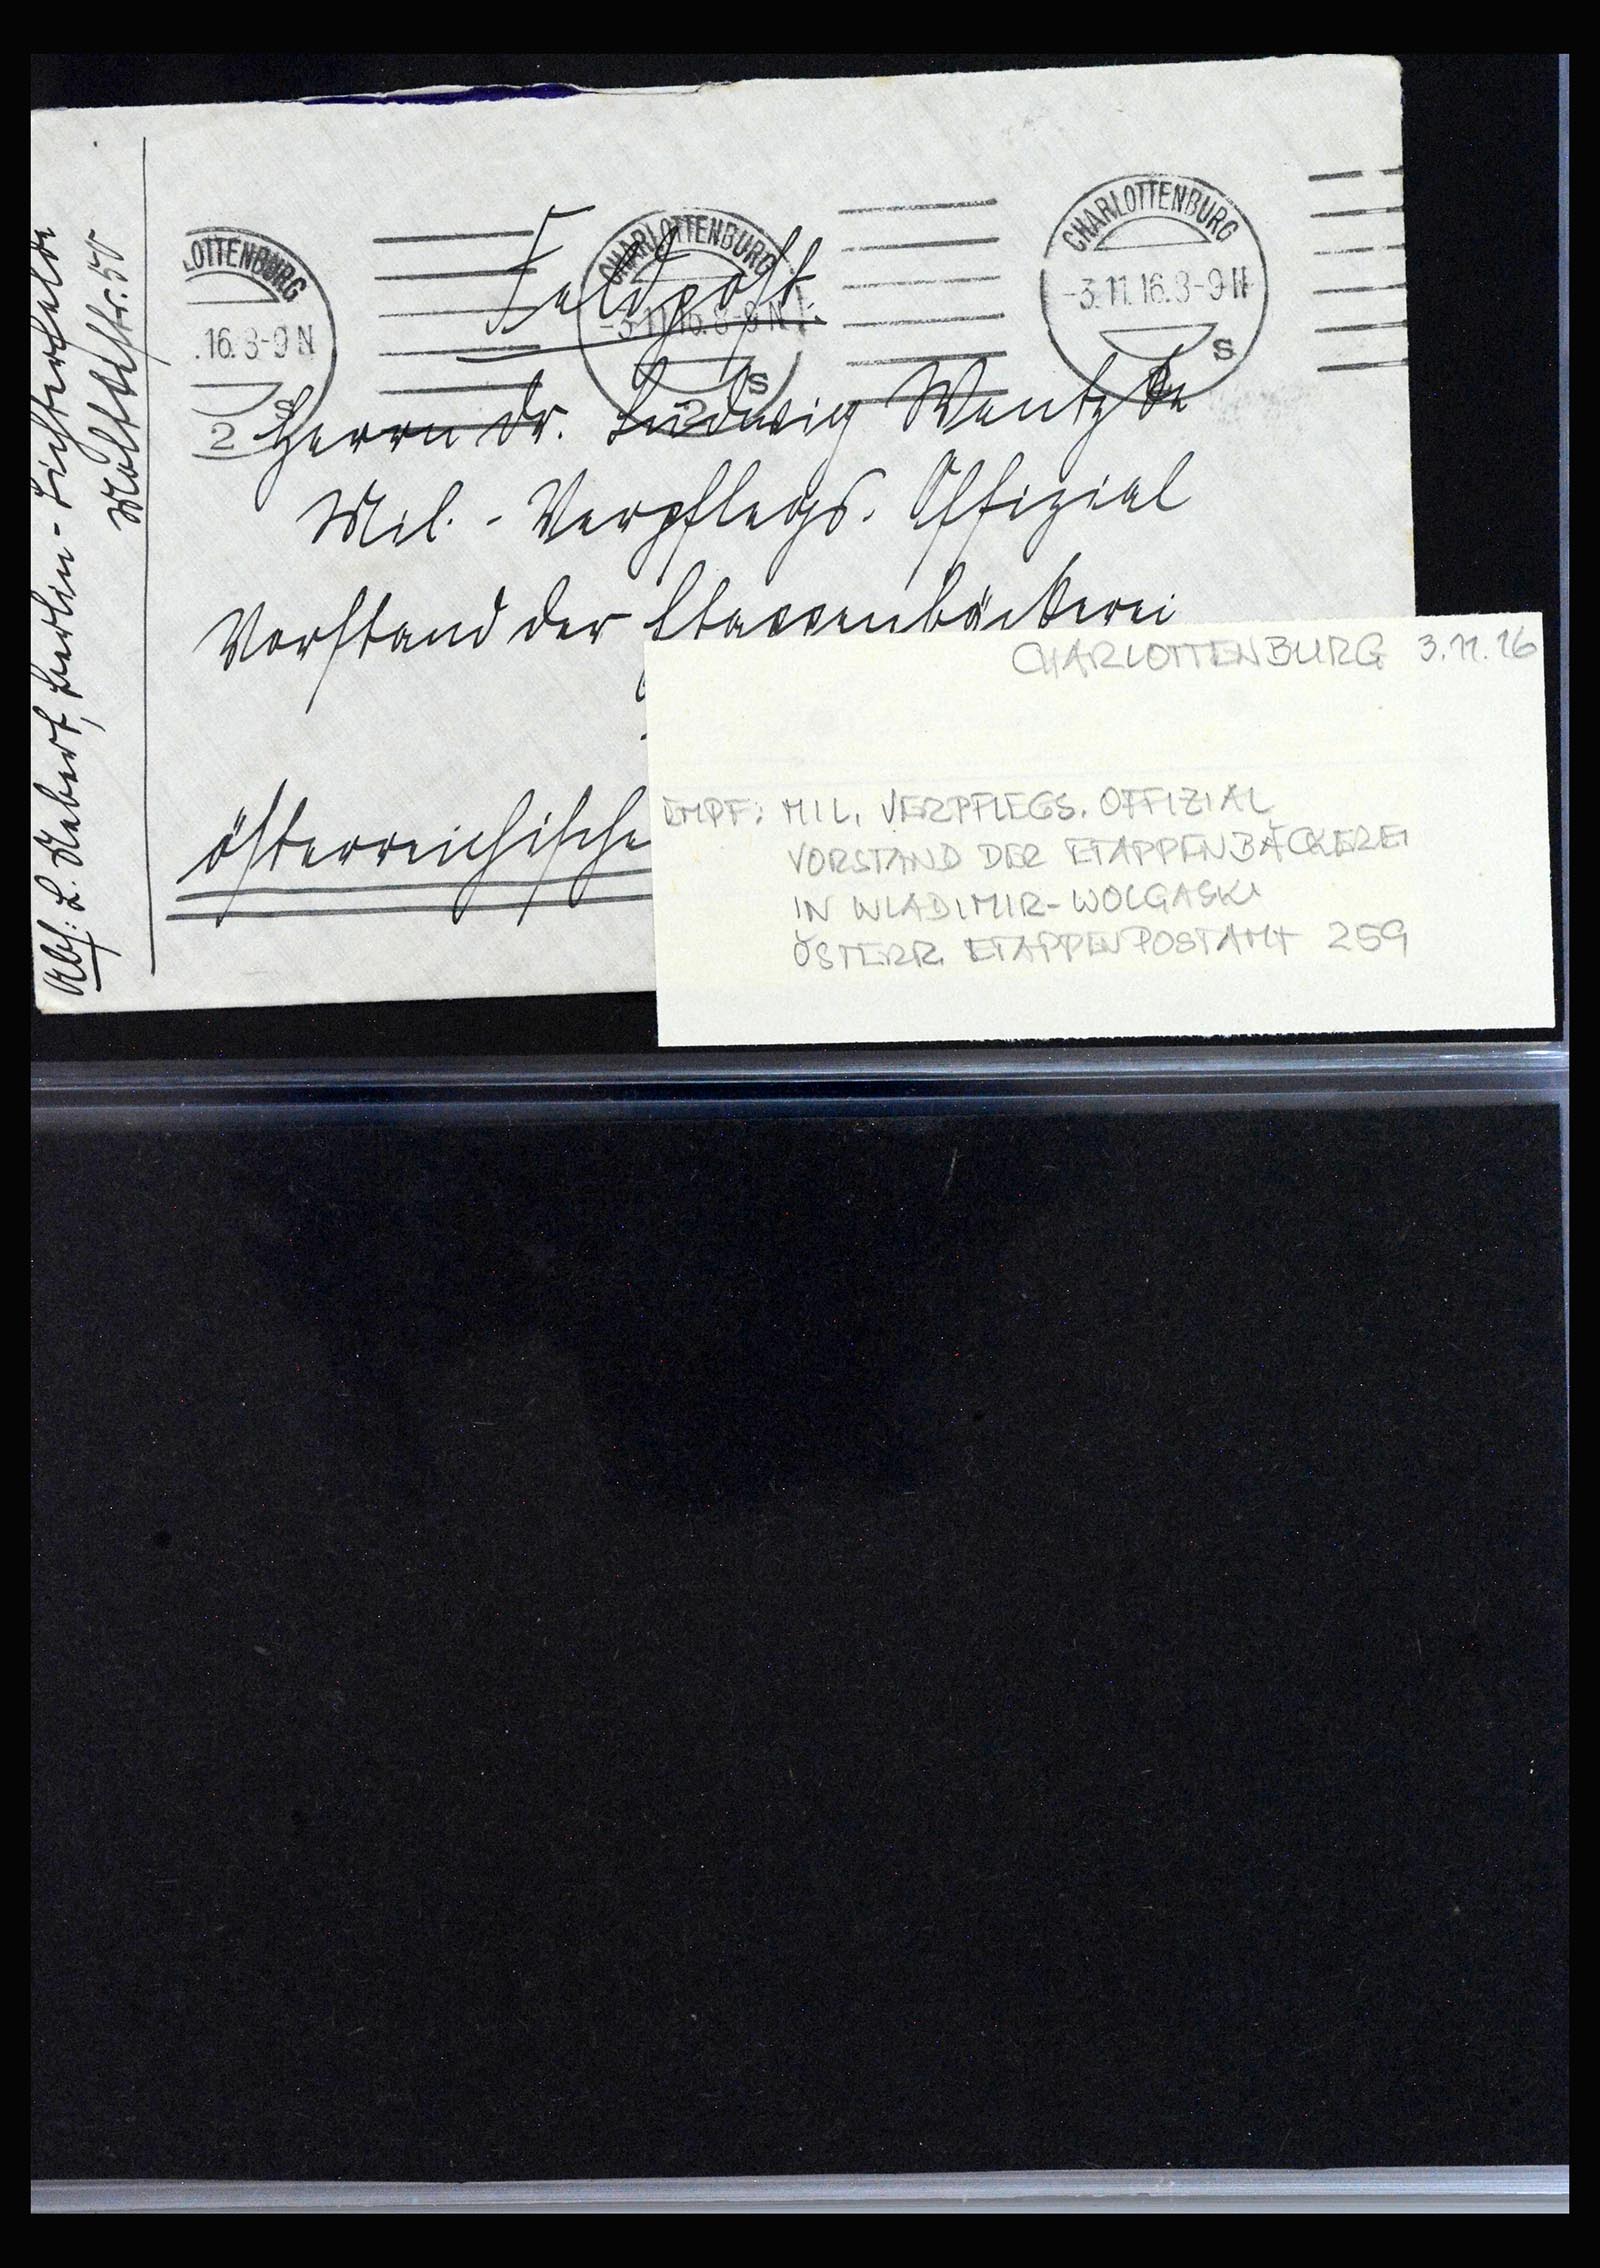 LOTTENBURG
.16.8-9N
2
s
CHARLOTTENBURG
-3.11.16.8-9N
2
s
CHARLOTTENBURG
-3.11.16.8-9N
s
Feldpost.
Herrn Dr. Ludwig Wentzke
Mil.-Verpflegs. Offizial
Vorstand der Etappenbäckerei
österreichische
Abs: L. Berlin-Lichterfelde
Moltkestr. 50
CHARLOTTENBURG 3.11.16
EMPF: MIL. VERPFLEGS. OFFIZIAL
VORSTAND DER ETAPPENBÄCKEREI
IN WLADIMIR-WOLGASKI
ÖSTERR. ETAPPENPOSTAMT 259